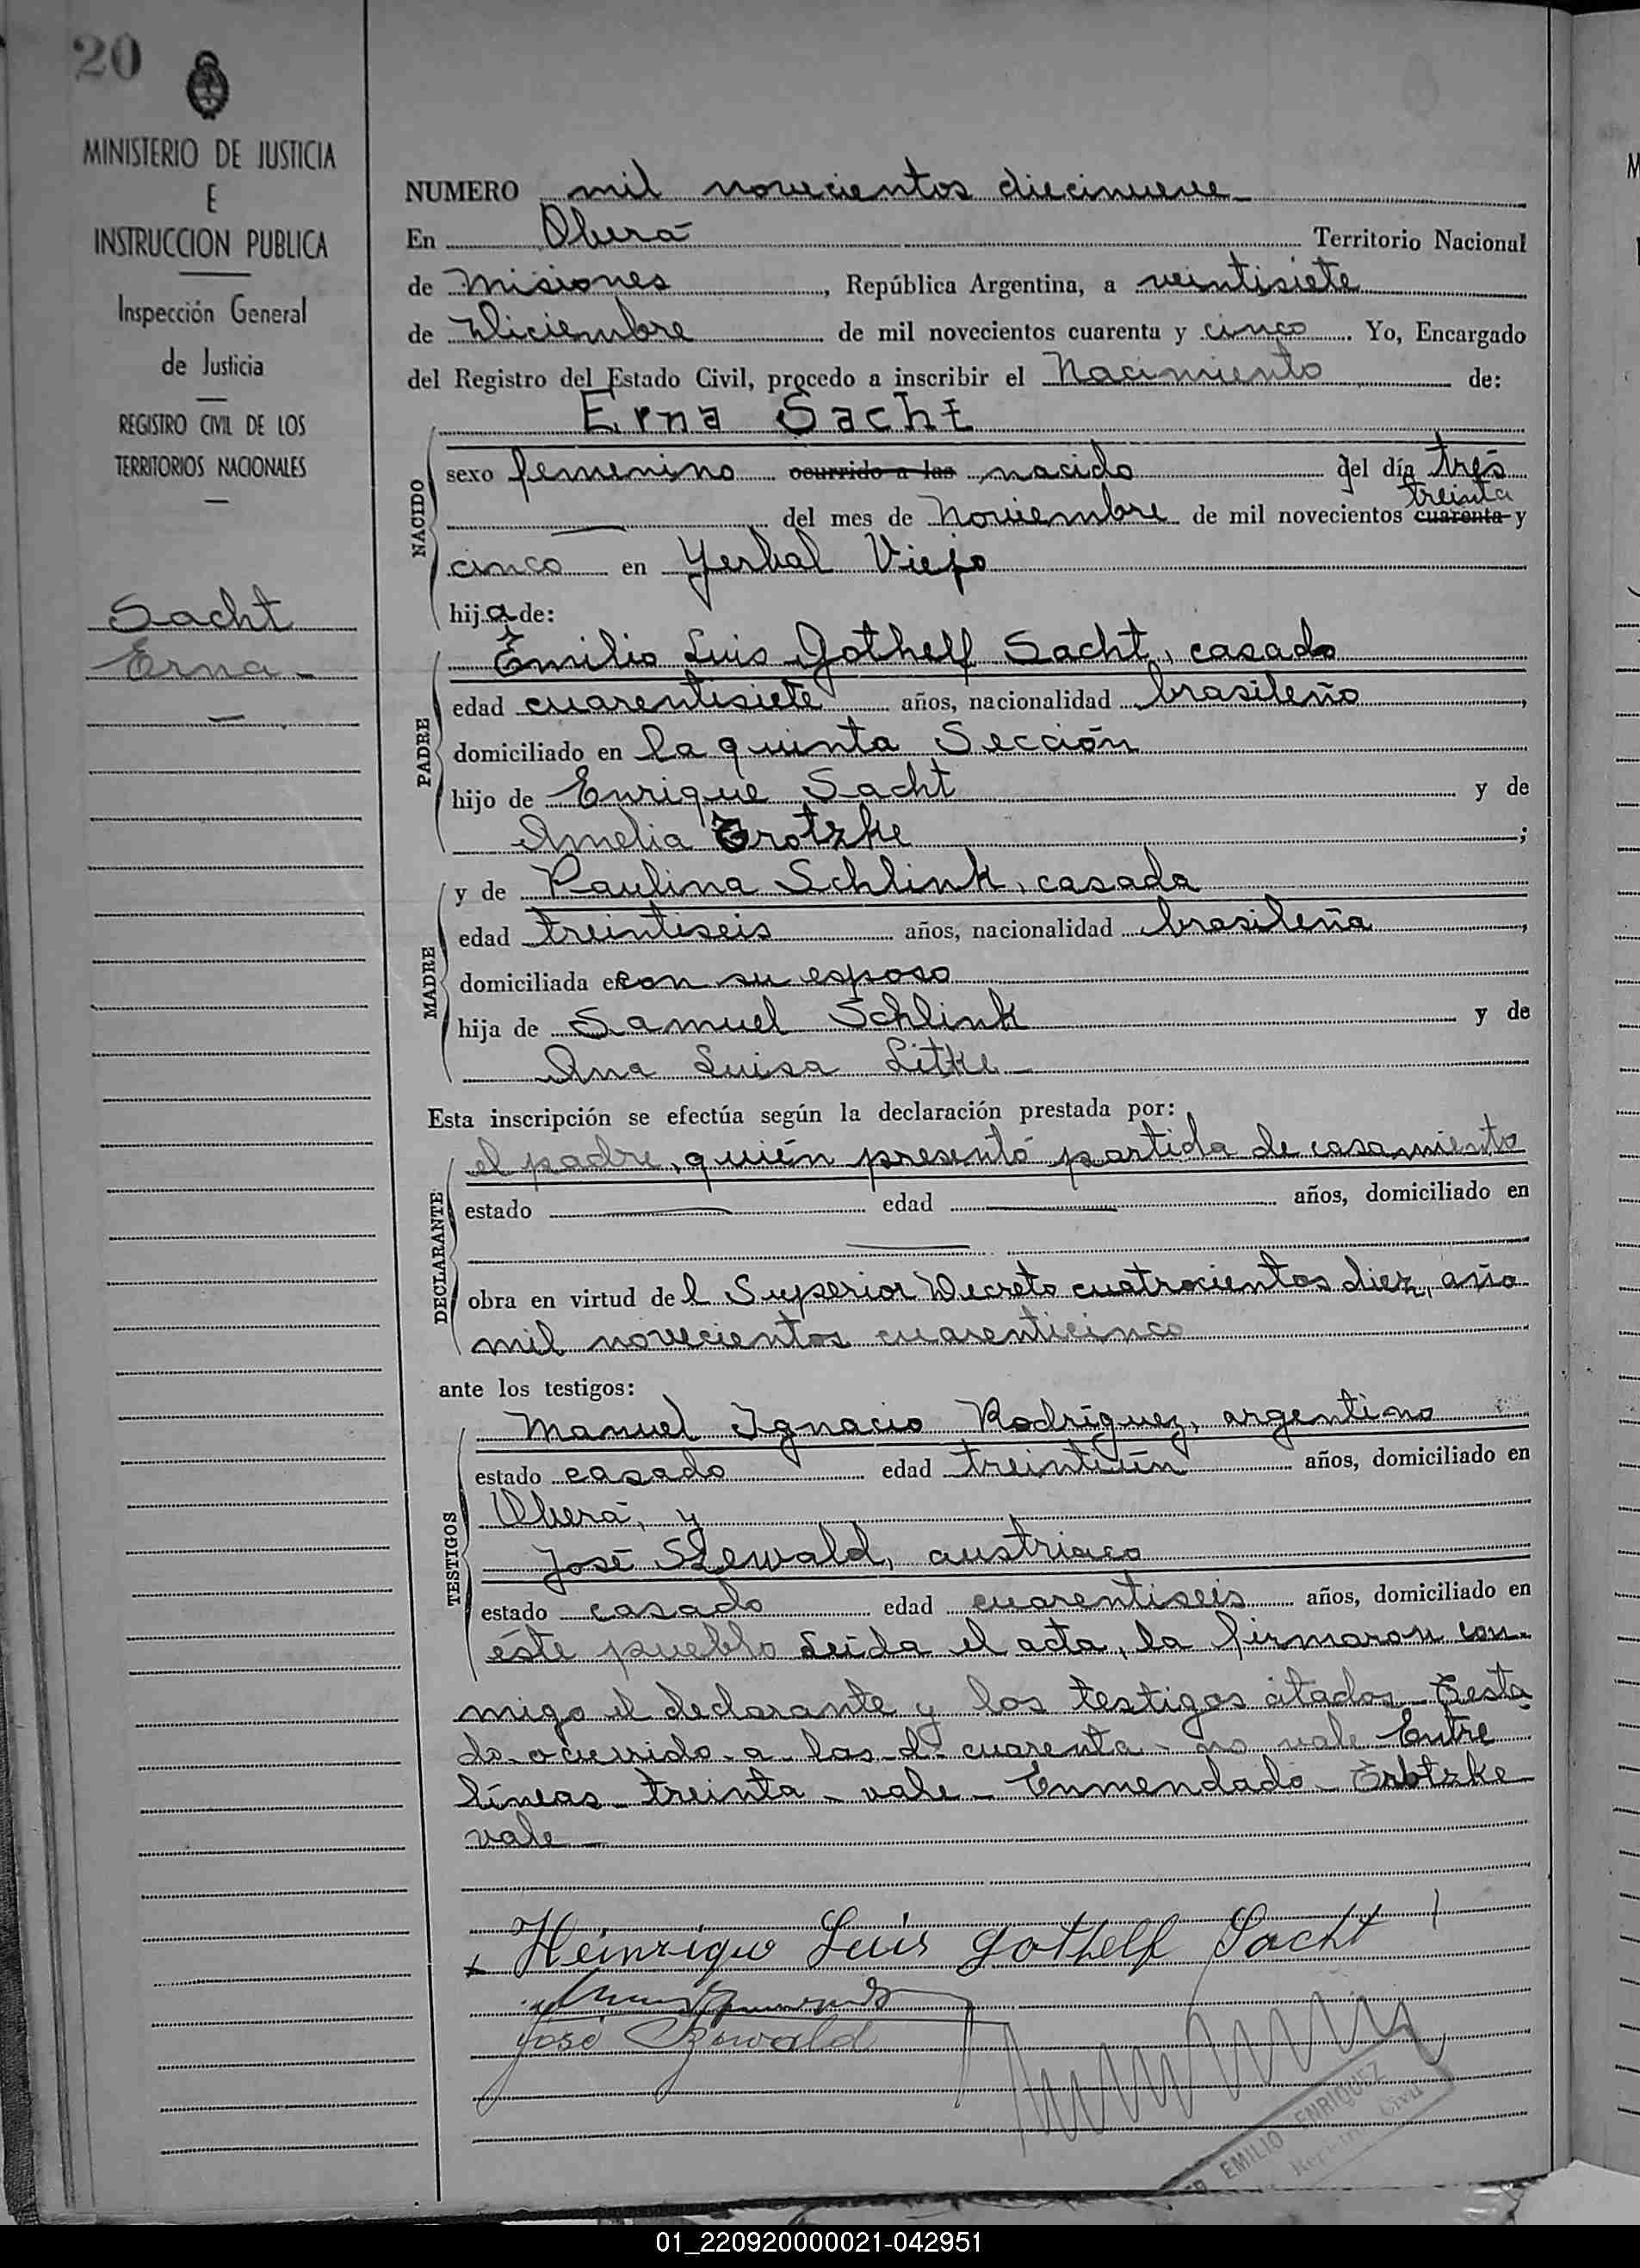 20
MINISTERIO DE JUSTICIA
E
INSTRUCCION PUBLICA
Inspección General
de Justicia
REGISTRO CIVIL DE LOS
TERRITORIOS NACIONALES
Sacht
Erna -
NUMERO mil novecientos diecinueve
En Oberá Territorio Nacional
de Misiones, República Argentina, a veintisiete
de Diciembre de mil novecientos cuarenta y cinco. Yo, Encargado
del Registro del Estado Civil, procedo a inscribir el Nacimiento de:
Erna Sacht
NACIDO
sexo femenino ocurrido a las nacido del día tres
treinta
del mes de Noviembre de mil novecientos cuarenta y
cinco en Yerbal Viejo
hija de:
PADRE
Emilio Luis Gothelf Sacht, casado
edad cuarentisiete años, nacionalidad brasileño,
domiciliado en la quinta Sección
hijo de Enrique Sacht y de
Amelia Trotzke;
MADRE
y de Paulina Schlink, casada
edad treintiseis años, nacionalidad brasileña,
domiciliada en con su esposo
hija de Samuel Schlink y de
Ana Luisa Litke -
Esta inscripción se efectúa según la declaración prestada por:
DECLARANTE
el padre, quién presentó partida de casamiento
estado edad años, domiciliado en
obra en virtud del Superior Decreto cuatrocientos diez, año
mil novecientos cuarenticinco
ante los testigos:
TESTIGOS
Manuel Ignacio Rodríguez, argentino
estado casado edad treintiún años, domiciliado en
Oberá, y
José Szewald, austriaco
estado casado edad cuarentiseis años, domiciliado en
éste pueblo Leída el acta, la firmaron con-
migo el declarante y los testigos citados - Testa
do - ocurrido - a - las - d - cuarenta - no vale - Entre
líneas - treinta - vale - Enmendado - Trotzke
vale -
Heinrique Luis Gothelf Sacht
José Szewald
EMILIO ENRIQUEZ
Registro Civil
01_220920000021-042951